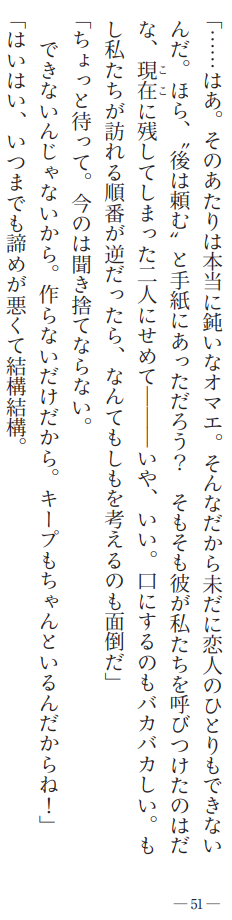 「……はあ。そのあたりは本当に鈍いなオマエ。そんなだから未だに恋人のひとりもできない
んだ。ほら、〝後は頼む〟と手紙にあっただろう？　そもそも彼が私たちを呼びつけたのはだ
な、現在に残してしまった二人にせめて――――いや、いい。口にするのもバカバカしい。も
ここ
し私たちが訪れる順番が逆だったら、なんてもしもを考えるのも面倒だ」
「ちょっと待って。今のは聞き捨てならない。
できないんじゃないから。作らないだけだから。キープもちゃんといるんだからね！」
「はいはい、いつまでも諦めが悪くて結構結構。
― 51 ―